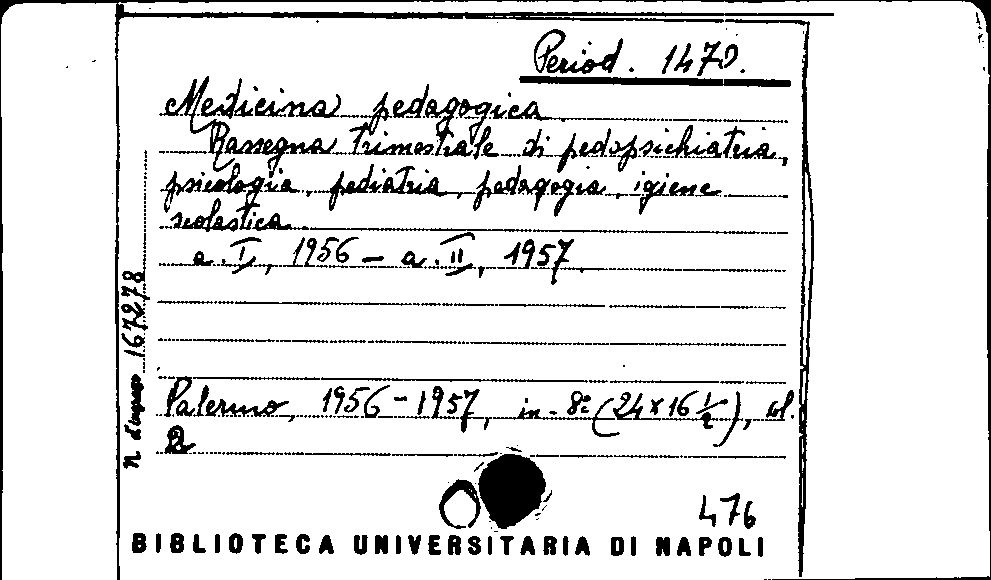 Period. 1470.
Medicina pedagogica.
Rassegna trimestrale di pedopsichiatria,
psicologia, pediatria, pedagogia, igiene
scolastica.
a. I, 1956 - a. II, 1957.
Palermo, 1956-1957, in-8º (24x16 ½), vol.
2
n. d'ingresso 167278
476
BIBLIOTECA UNIVERSITARIA DI NAPOLI